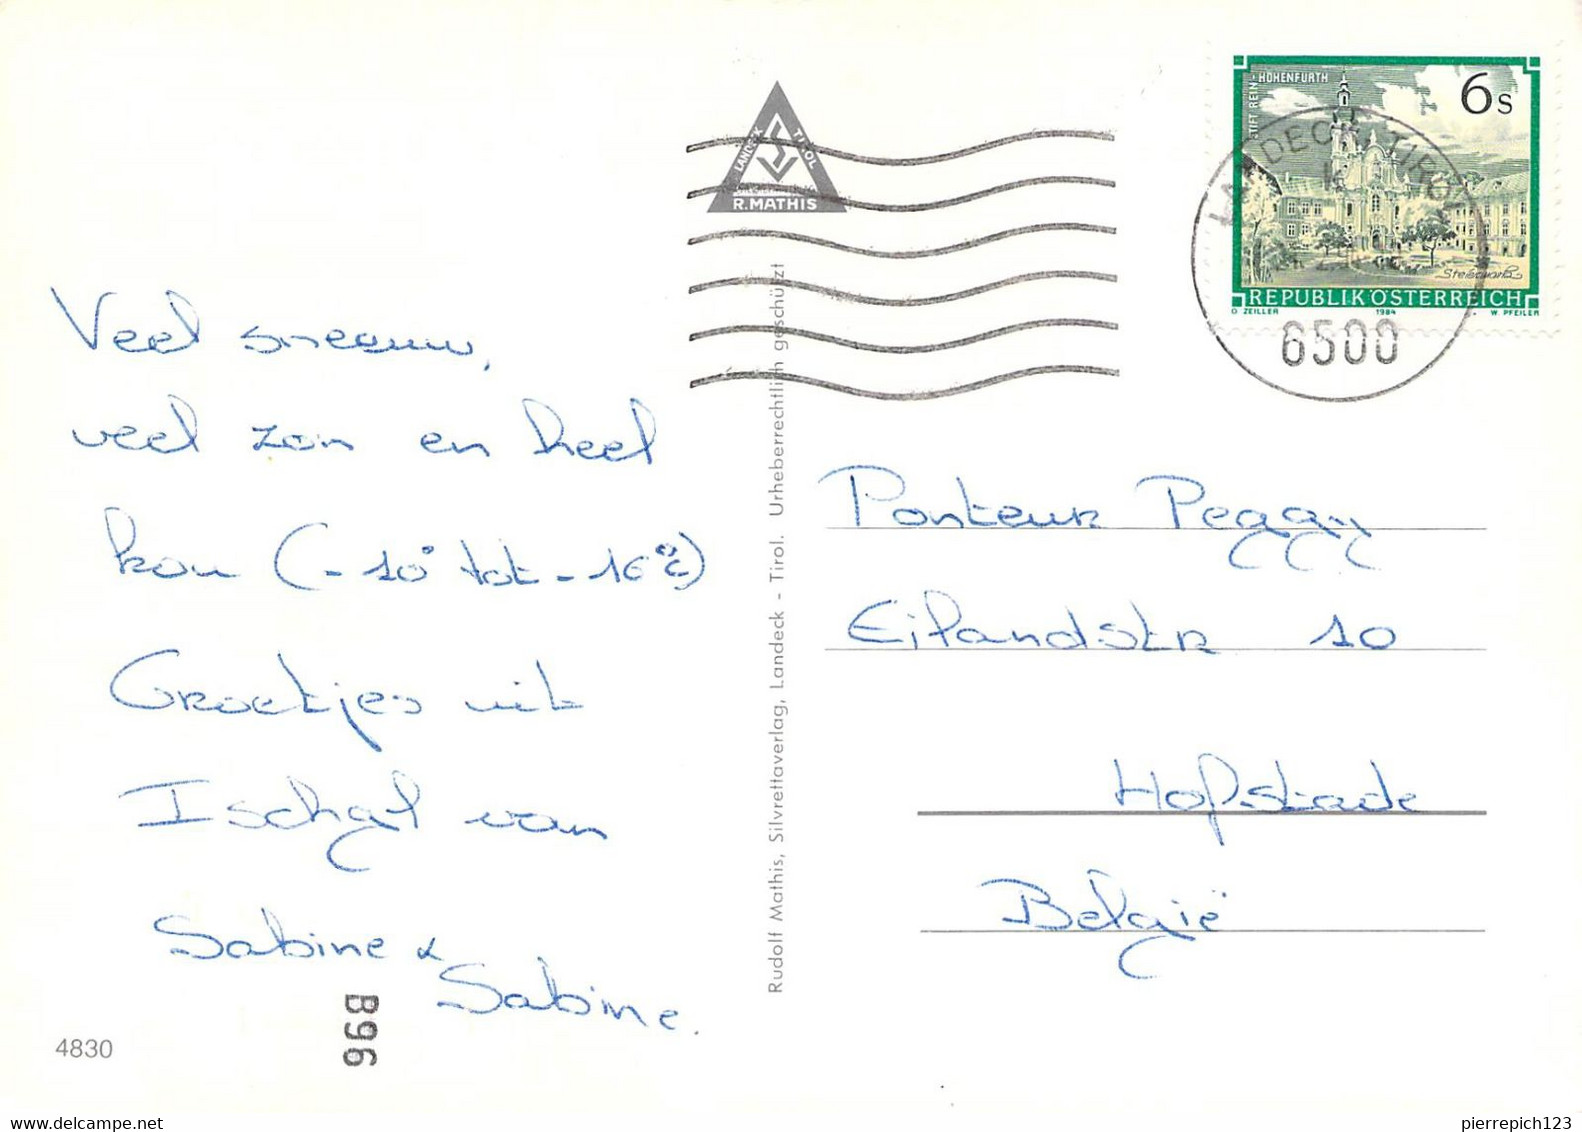 Veel sneeuw,
veel zon en heel
kou (-10° tot -16°C)
Groetjes uit
Ischgl van
Sabine &
Sabine.
B96
4830
LANDECK TIROL
R. MATHIS
Rudolf Mathis, Silvrettaverlag, Landeck - Tirol. Urheberrechtlich geschützt
STIFT REIN-HOHENFURTH
6s
LANDECK, TIROL
6500
REPUBLIK ÖSTERREICH
O. ZEILLER 1984 W. PFEILER
Ponteur Peggy
Eilandstr 10
Hofstade
België
www.delcampe.net
pierrepich123